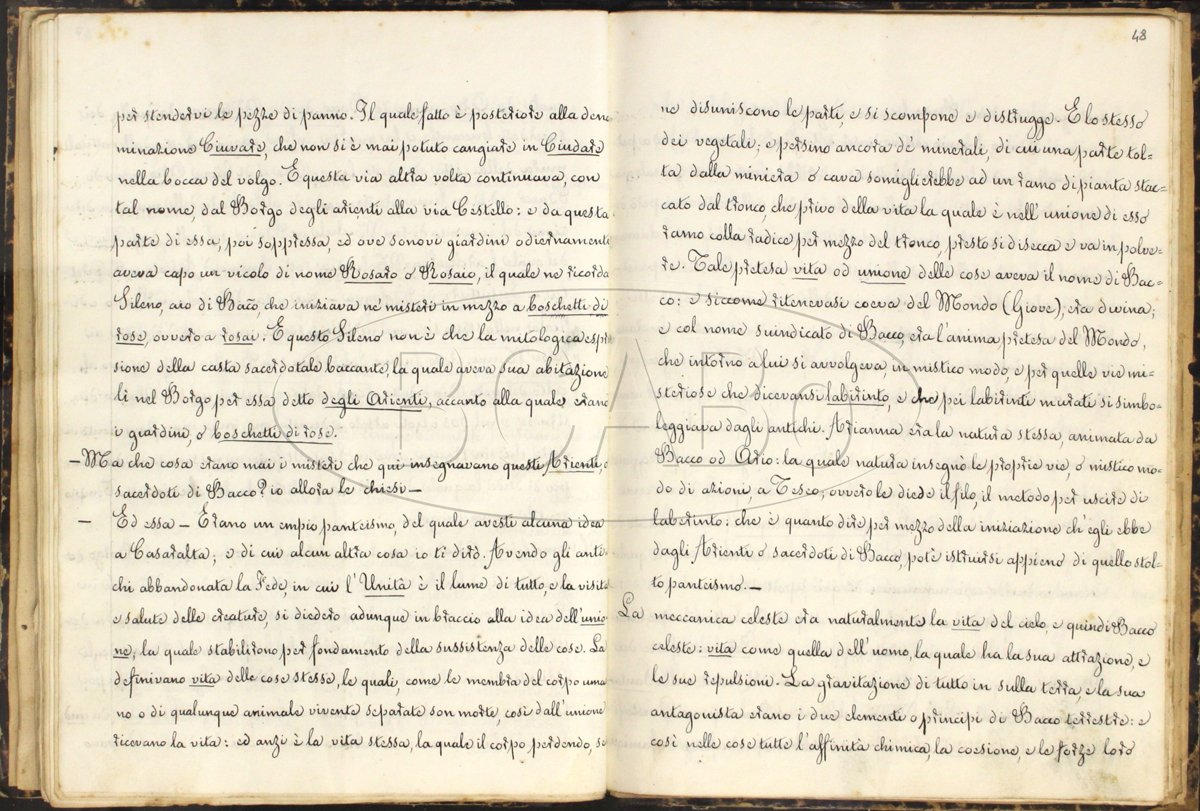 per stendervi le pezze di panno. Il quale fatto è posteriore alla deno
minazione Ciuvare, che non si è mai potuto cangiare in Ciudare
nella bocca del volgo. E questa via altra volta continuava, con
tal nome, dal Borgo degli arienti alla via Cestello: e da questa
parte di essa, poi soppressa, ed ove sonovi giardini odiernamente
aveva capo un vicolo di nome Rosaro o Rosaio, il quale ne ricorda
Sileno, aio di Bacco, che iniziava ne' misteri in mezzo a boschetti di
rose, ovvero a rosai. E questo Sileno non è che la mitologica espres
sione della casta sacerdotale baccante, la quale aveva sua abitazione
lì nel Borgo per essa detto degli Arienti, accanto alla quale erano
i giardini, o boschetti di rose.
– Ma che cosa erano mai i misteri che qui insegnavano questi Arienti, o
sacerdoti di Bacco? io allora le chiesi –
– Ed essa – Erano un empio panteismo, del quale avesti alcuna idea
a Casaralta; e di cui alcun altra cosa io ti dirò. Avendo gli anti
chi abbandonata la Fede, in cui l'Unità è il lume di tutto, e la visita
e salute delle creature, si diedero adunque in braccio alla idea dell'unio
ne, la quale stabilirono per fondamento della sussistenza delle cose. La
definivano vita delle cose stesse, le quali, come le membra del corpo uma
no o di qualunque animale vivente separate son morte, così dall'unione
ricevano la vita: ed anzi è la vita stessa, la quale il corpo perdendo, se
48
ne disuniscono le parti, e si scompone e distrugge. E lo stesso
dei vegetali; e persino ancora de' minerali, di cui una parte tol=
ta dalla miniera o cava somiglierebbe ad un ramo di pianta stac=
cato dal tronco, che privo della vita la quale è nell'unione di esso
ramo colla radice per mezzo del tronco, presto si disecca e va in polve=
re. Tale pretesa vita od unione delle cose aveva il nome di Bac=
co: e siccome ritenevasi coeva del Mondo (Giove), era divina;
e col nome suindicato di Bacco, era l'anima pretesa del Mondo,
che intorno a lui si avvolgeva in mistico modo, e per quelle vie mi=
steriose che dicevansi labirinto, e che pei labirinti murati si simbo=
leggiava dagli antichi. Arianna era la natura stessa, animata da
Bacco od Ario: la quale natura insegnò le proprie vie, o mistico mo=
do di azioni, a Teseo; ovvero le diede il filo, il metodo per uscire di
laberinto: che è quanto dire, per mezzo della iniziazione ch'egli ebbe
dagli Arienti o sacerdoti di Bacco, potè istruirsi appieno di quello stol=
to panteismo. –
La meccanica celeste era naturalmente la vita del cielo, e quindi Bacco
celeste: vita come quella dell'uomo, la quale ha la sua attrazione, e
le sue repulsioni. La gravitazione di tutto in sulla terra, e la sua
antagonista erano i due elementi o principi di Bacco terrestre: e
così nelle cose tutte l'affinità chimica, la coesione, e le forze loro
BCABo